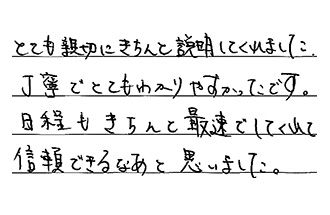 とても親切にきちんと説明してくれました。
丁寧でとてもわかりやすかったです。
日程もきちんと最速でしてくれて
信頼できるなあと思いました。